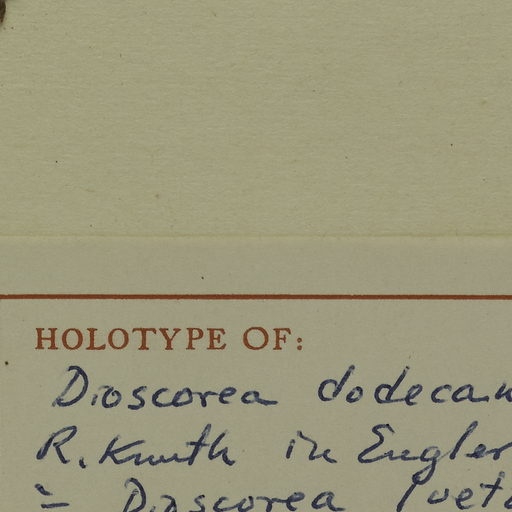 HOLOTYPE OF:
Dioscorea dodecan
R. Knuth in Engler
= Dioscorea